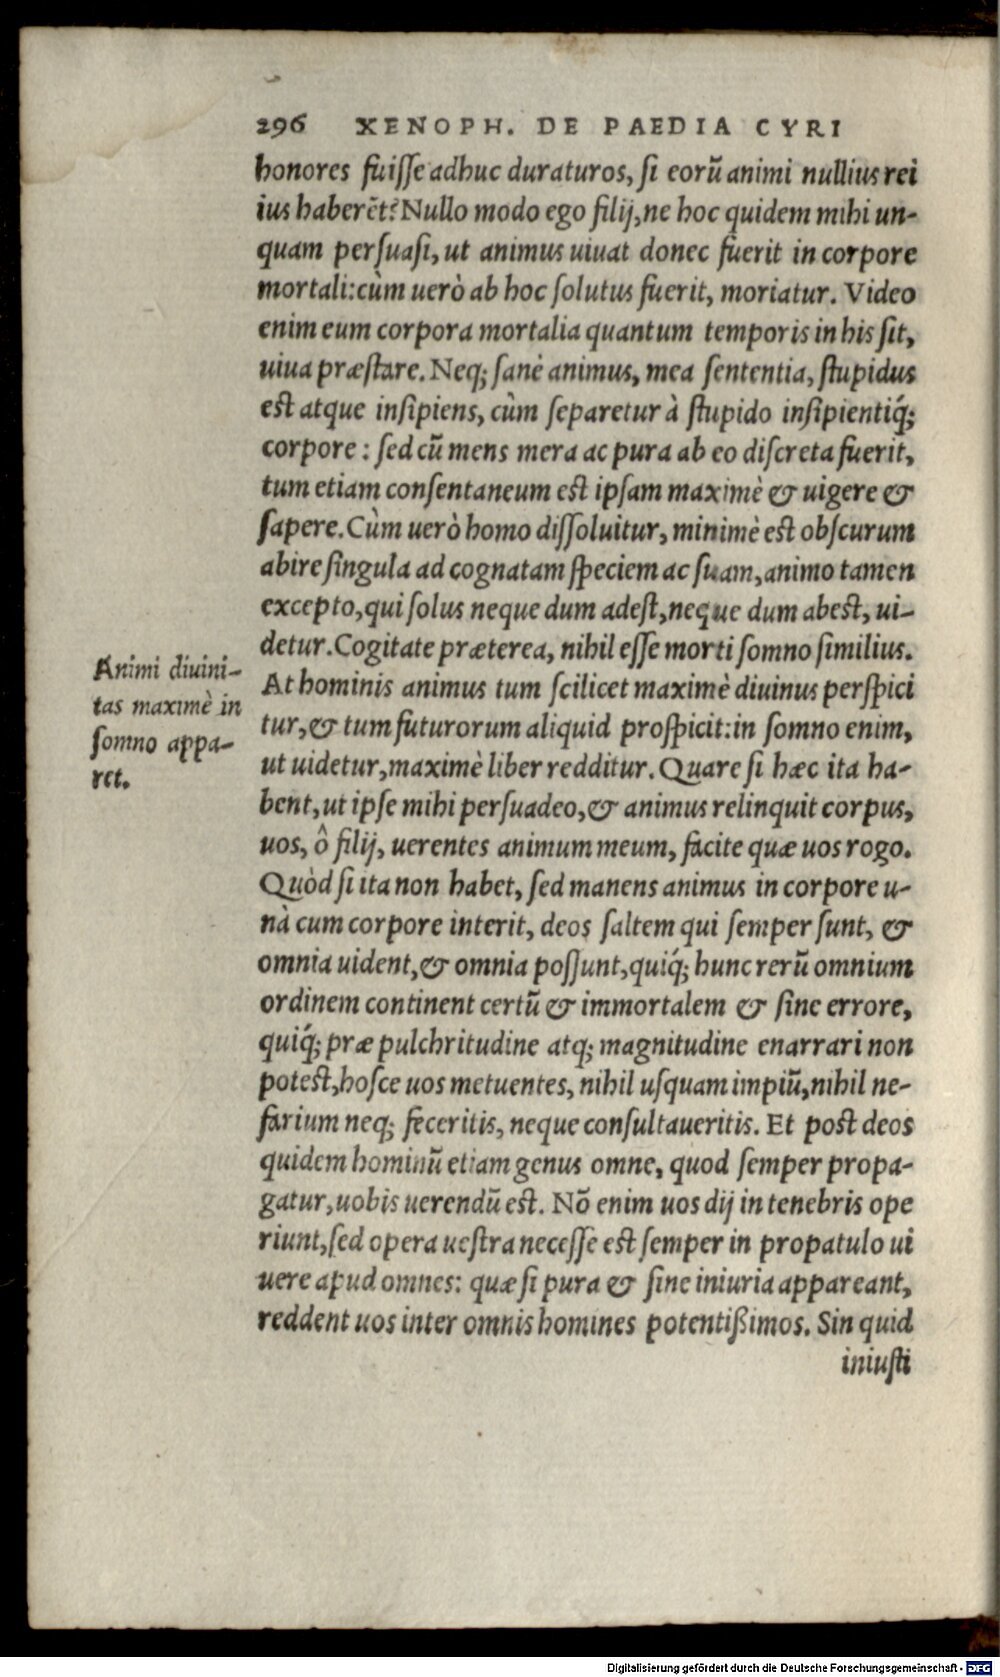 296 XENOPH. DE PAEDIA CYRI
honores fuisse adhuc duraturos, si eorū animi nullius rei
ius haberēt? Nullo modo ego filij, ne hoc quidem mihi un-
quam persuasi, ut animus uiuat donec fuerit in corpore
mortali: cùm uerò ab hoc solutus fuerit, moriatur. Video
enim eum corpora mortalia quantum temporis in his sit,
uiua præstare. Neq; sanè animus, mea sententia, stupidus
est atque insipiens, cùm separetur à stupido insipientiq́;
corpore: sed cū mens mera ac pura ab eo discreta fuerit,
tum etiam consentaneum est ipsam maximè & uigere &
sapere. Cùm uerò homo dissoluitur, minimè est obscurum
abire singula ad cognatam speciem ac suam, animo tamen
excepto, qui solus neque dum adest, neque dum abest, ui-
detur. Cogitate præterea, nihil esse morti somno similius.
At hominis animus tum scilicet maximè diuinus perspici
tur, & tum futurorum aliquid prospicit: in somno enim,
ut uidetur, maximè liber redditur. Quare si hæc ita ha-
bent, ut ipse mihi persuadeo, & animus relinquit corpus,
uos, ô filij, uerentes animum meum, facite quæ uos rogo.
Quòd si ita non habet, sed manens animus in corpore u-
nà cum corpore interit, deos saltem qui semper sunt, &
omnia uident, & omnia possunt, quiq́; hunc rerū omnium
ordinem continent certū & immortalem & sine errore,
quiq́; præ pulchritudine atq; magnitudine enarrari non
potest, hosce uos metuentes, nihil usquam impiū, nihil ne-
farium neq; feceritis, neque consultaueritis. Et post deos
quidem hominū etiam genus omne, quod semper propa-
gatur, uobis uerendū est. Nō enim uos dij in tenebris ope
riunt, sed opera uestra necesse est semper in propatulo ui
uere apud omnes: quæ si pura & sine iniuria appareant,
reddent uos inter omnis homines potentißimos. Sin quid
iniusti
Animi diuini-
tas maximè in
somno appa-
ret.
Digitalisierung gefördert durch die Deutsche Forschungsgemeinschaft - DFG